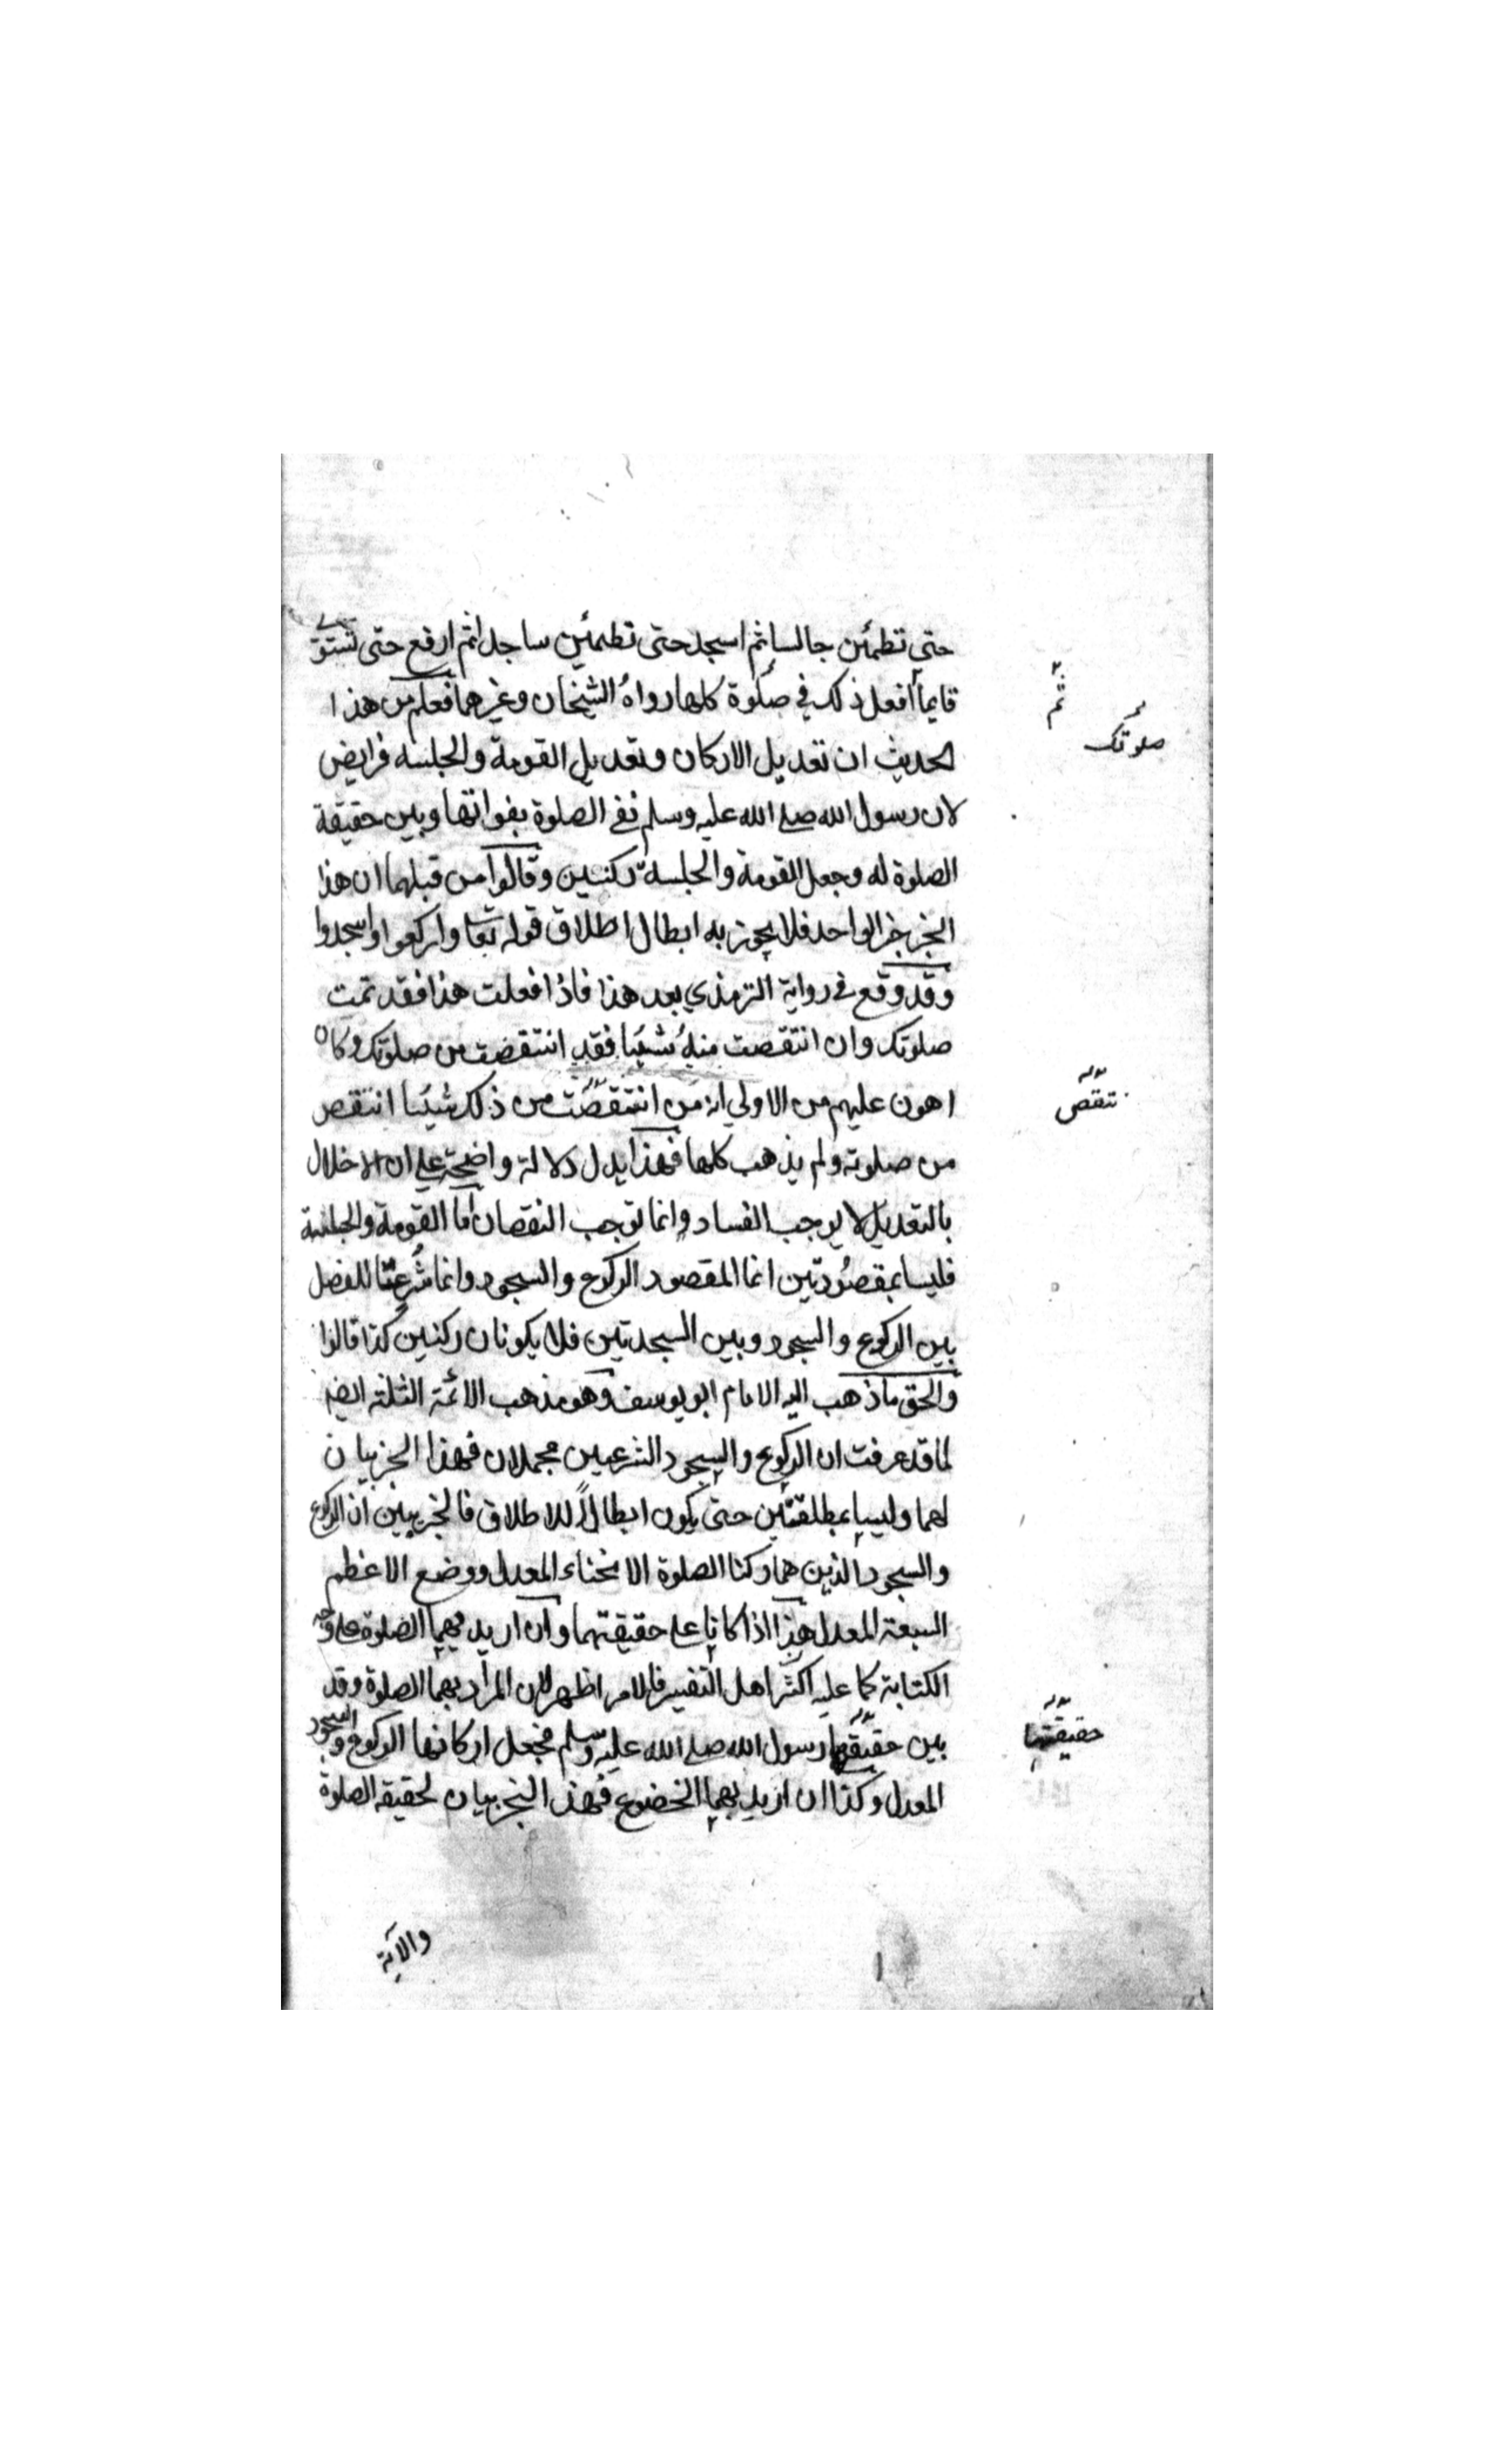 حتي تطمأن جالسا ثم اسجد حتى تطمئن ساجدا ثم ارفع حتى تستوي
قايما افعل ذلك في صلوة كلها رواه الشيخان وغيرهما فعلم من هذا
ثم
صلوتك
الحديث ان تعديل الاركان وتعديل القومة والجلسة فرايض
لان رسول الله صلى الله عليه وسلم نفى الصلوة بفواتها وبين حقيقة
الصلوة له وجعل القومة والجلسة ركنين وقالوا من قبلهما ان هذا
الخبر خبر الواحد فلا يجوز به ابطال اطلاق قوله تعا واركعوا واسجدوا
وقد وقع في رواية الترمذي بعد هذا فاذا فعلت هذا فقد تمت
صلوتك وان انتقصت منه شيئا فقد انتقصت من صلوتك وكان
اهون عليهم من الاولي انه من انتقصت من ذلك شيئا انتقص
تنقص
من صلوته ولم يذهب كلها فهذا يدل دلالة واضحة على ان الاخلال
بالتعديل لا يوجب الفساد وانما توجب النقصان اما القومة والجلسة
فليسا بمقصودتين انما المقصود الركوع والسجود وانما شرعتا للفصل
بين الركوع والسجود وبين السجدتين فلا يكونان ركنين كذا قالوا
والحق ما ذهب اليه الامام ابو يوسف وهو مذهب الائمة الثلثة ايضا
لما قد عرفت ان الركوع والسجود الشرعيين مجملان فهذا الخبر بيان
لهما وليسا بمطلقين حتى يكون ابطالا للاطلاق فالخبر يبين ان الركوع
والسجود الذين هما ركنا الصلوة الانحناء المعدل ووضع الاعظم
السبعة المعدل هذا اذا كانا على حقيقتهما وان اريد بهما الصلوة على وجه
الكتابة كما عليه اكثر اهل التفسير فالامر اظهر لان المراد بهما الصلوة وقد
بين حقيقتها رسول الله صلى الله عليه وسلم فجعل اركانها الركوع والسجود
حقيقتها
المعدل وكذا ان اريد بهما الخضوع فهذا الخبر بيان لحقيقة الصلوة
والآية